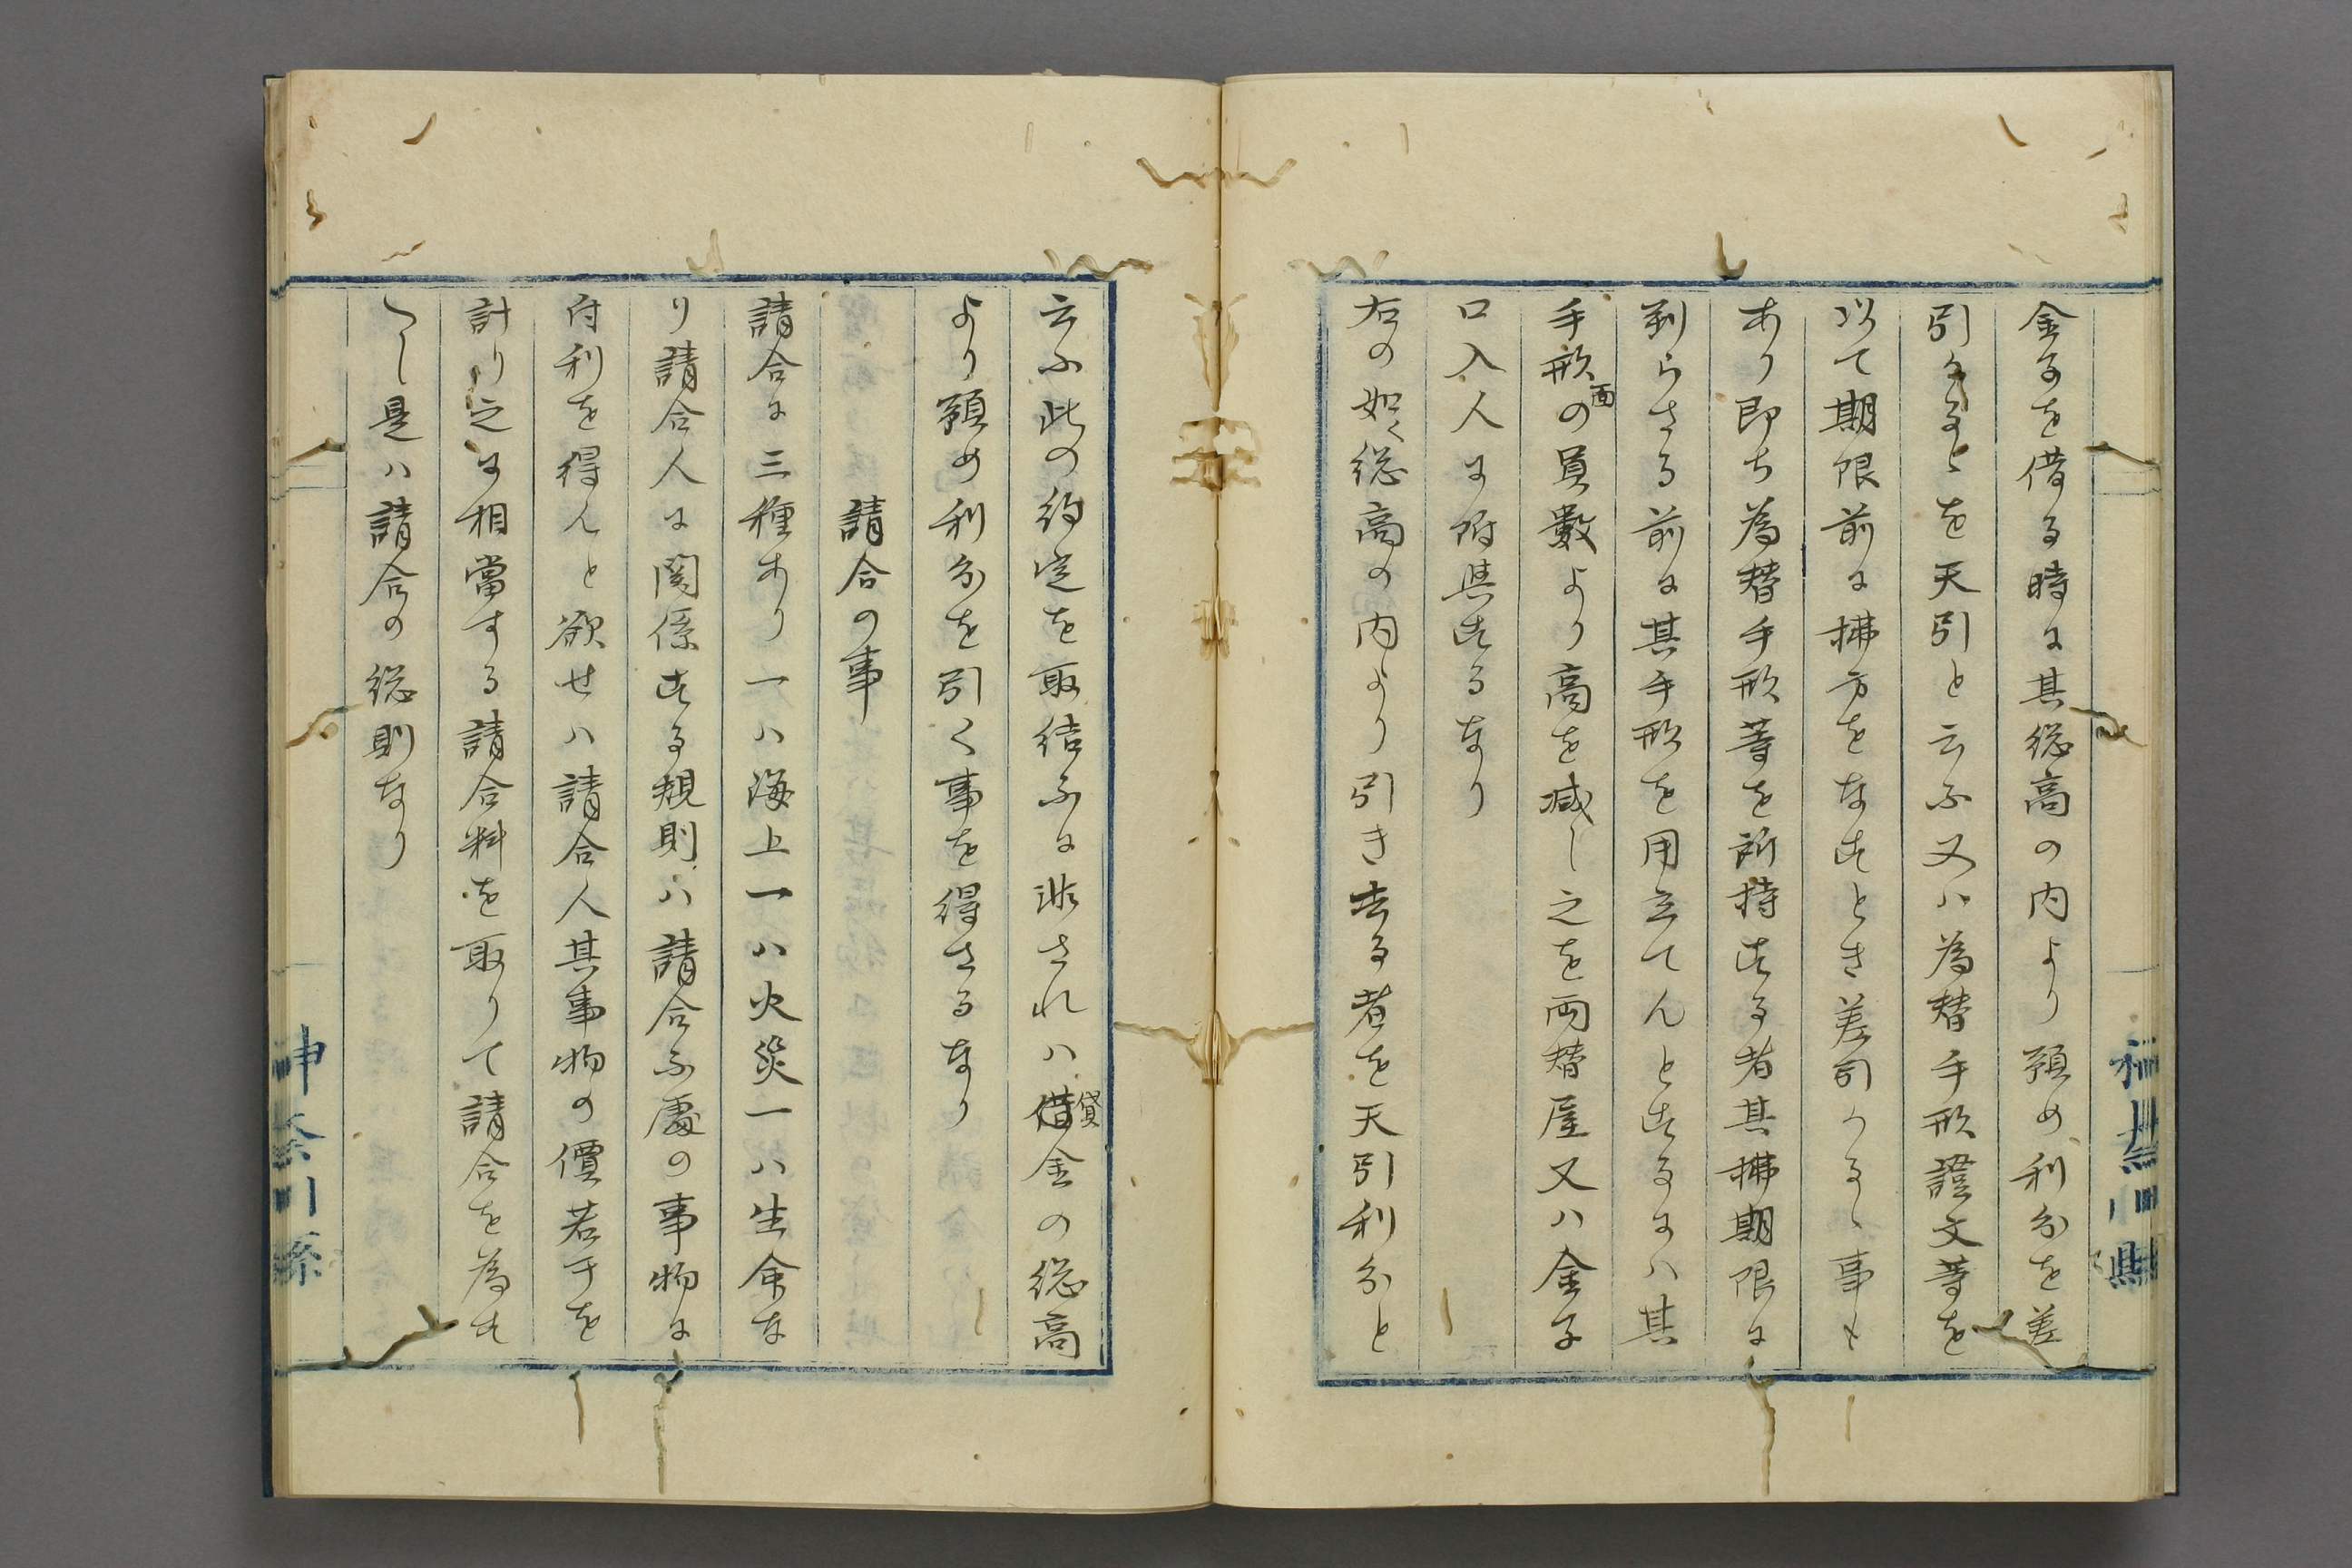 金子を借る時は其総高の内より預め利分を差
引かるゝを天引と云ふ又ハ為替手形證文等を
以て期限前に拂方をなすとき差引かるゝ事も
あり即ち為替手形等を所持する者其拂期限に
到らさる前に其手形を用立てんとするにハ其
手形面の員數より高を减し之を両替屋又ハ金子
口入人に附與するなり
右の如く総高の内より引き去る者を天引利分と
云ふ此の約定を取結ふに非されハ貸金の総高
より預め利分を引く事を得さるなり
請合の事
請合に三種あり一ハ海上一ハ火災一ハ生命な
り請合人に関係する規則ハ請合ふ處の事物に
付利を得んと欲せハ請合人其事物の價若干を
計り之に相當する請合料を取りて請合を為す
へし是ハ請合の総則なり
神奈川縣